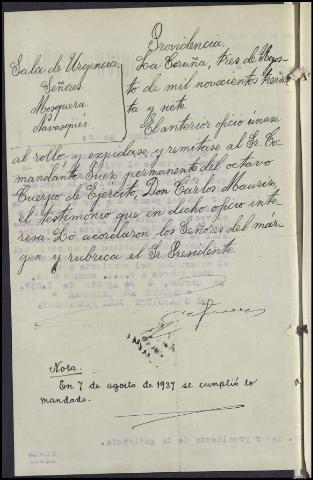 Providencia.
Sala de Urgencia
Señores:
Mosquera
Navasqués.
La Coruña, tres de Agos-
to de mil novecientos trein-
ta y siete.
El anterior oficio únase
al rollo, y expídase y remítase al Sr. Co-
mandante Juez permanente del octavo
Cuerpo de Ejército, Don Carlos Mauriz,
el testimonio que en dicho oficio inte-
resa. Lo acordaron los Señores del már-
gen y rubrica el Sr. Presidente.
Nota.
En 7 de agosto de 1937 se cumplió lo
mandado.